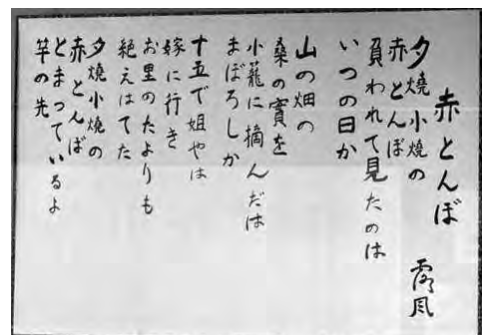 赤とんぼ
露風
夕焼小焼の
赤とんぼ
負われて見たのは
いつの日か
山の畑の
桑の實を
小籠に摘んだは
まぼろしか
十五で姐やは
嫁に行き
お里のたよりも
絶えはてた
夕焼小焼の
赤とんぼ
とまっているよ
竿の先